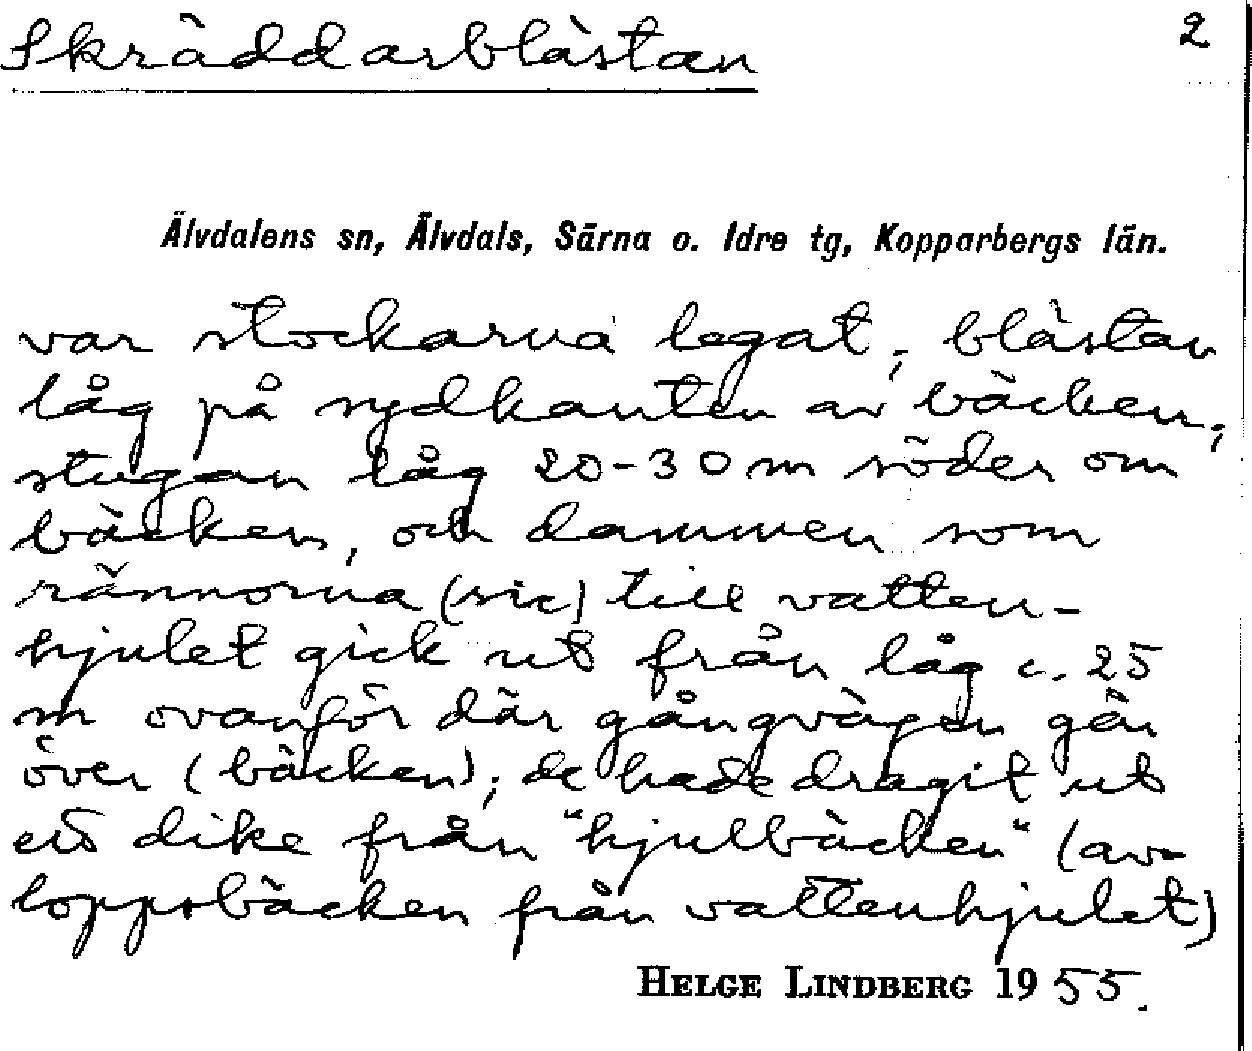 Skräddarblästan 2
Älvdalens sn, Älvdals, Särna o. Idre tg, Kopparbergs län.
var stockarna legat; blästan
låg på sydkanten av bäcken;
stugan låg 20-30 m söder om
bäcken, och dammen som
rännorna (sic) till vatten-
hjulet gick ut från låg c. 25
m ovanför där gångvägen går
över (bäcken); de hade dragit ut
ett dike från "hjulbäcken" (av-
loppsbäcken från vattenhjulet)
HELGE LINDBERG 1955.